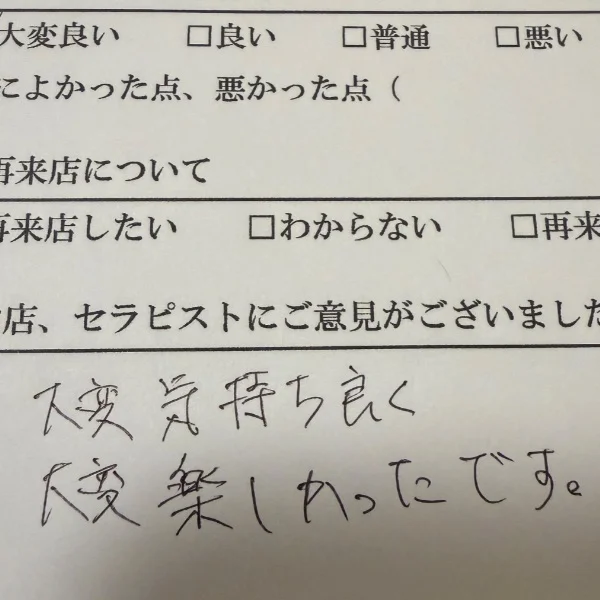 大変良い □良い □普通 □悪い
によかった点、悪かった点（
再来店について
再来店したい □わからない □再来
店、セラピストにご意見がございました
大変気持ち良く
大変楽しかったです。